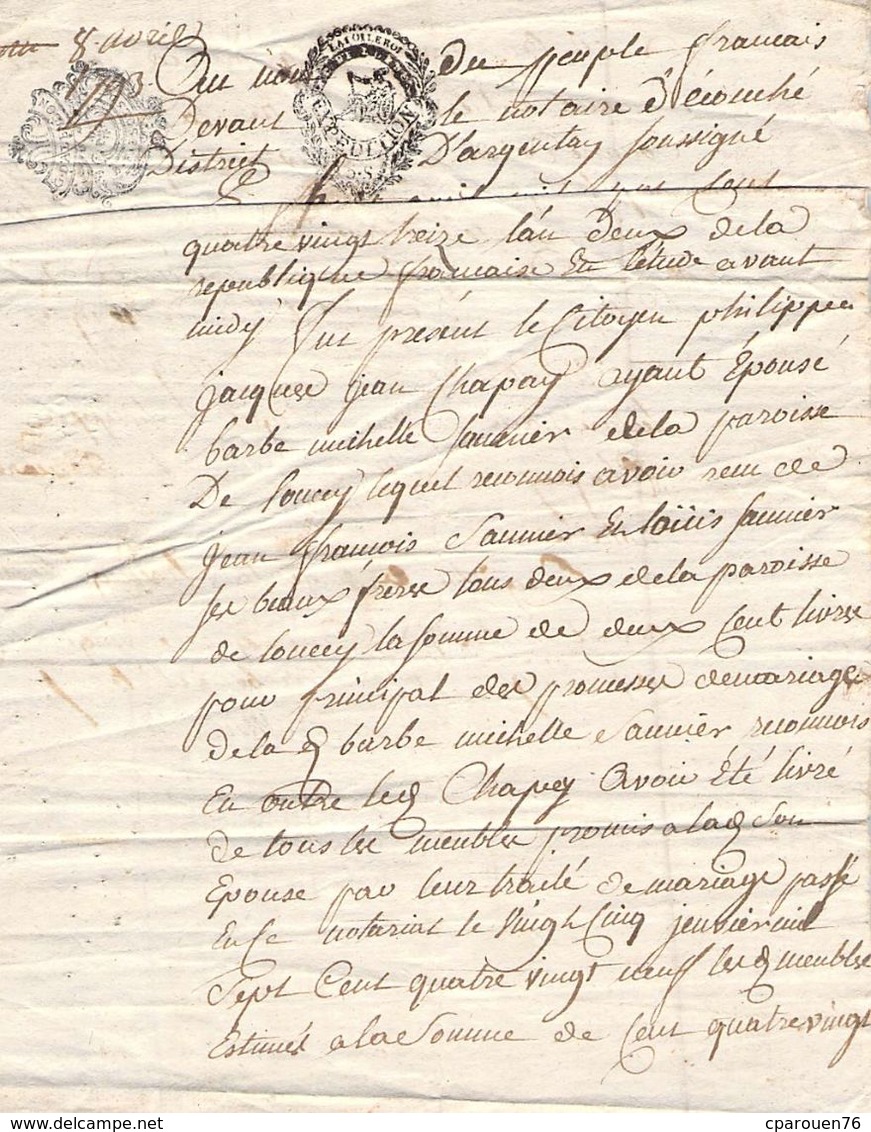 8 avril
1793
Au nom du peuple francais
Devant le notaire d'écouché
District D'argentan soussigné
quatre vingt treize l'an deux de la
republique francaise En l'étude avant
midy fut présent le Citoyen philippe
jacques jean Chapey ayant Épousé
barbe michelle saunier de la paroisse
De loucey lequel reconnois avoir recu de
jean francois Saunier En loüis saunier
ses beaux freres tous deux de la paroisse
de loucey la somme de deux Cent livres
pour principal des promesses demariage
dela d barbe michelle Saunier reconnois
En outre led Chapey Avoir Été livré
de tous les meubles promis a lad son
Epouse par leur traité de mariage passé
En ce notariat le Vingt Cinq jenvier mil
Sept Cent quatre vingt neuf lesd meubles
Estimés a la Somme de Cent quatre vingt
LA LOI LE ROI
EXPEDITION
cparouen76